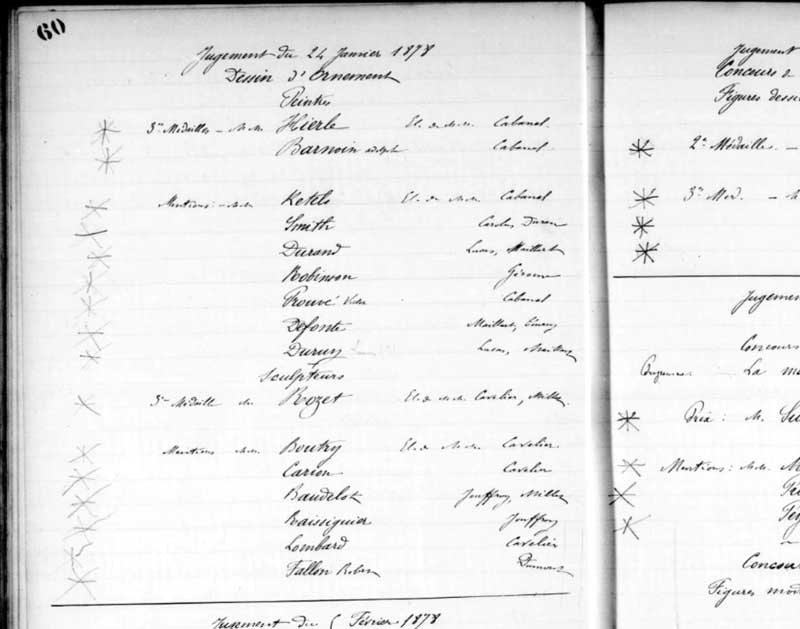 60
Jugement du 24 Janvier 1878
Dessin d'Ornement
Peintres
3es Médailles – M.M. Hierle El. de M.M. Cabanel.
Barnoin Cabanel.
Mentions – M.M. Ketels El. de M.M. Cabanel
Smith Carolus Duran
Durand Lucas, Maillart
Robinson Gérome
Prouvé Victor Cabanel
Defonte Maillart,
Duruy Lucas, Maillart
Sculpteurs
3e Médaille M. Rozet El. de M.M. Cavelier, Millet.
Mentions M.M. Boutry El. de M.M. Cavelier
Carion Cavelier
Baudelot Jouffroy, Millet
Raissiguier Jouffroy
Lombard Cavelier
Fallon Dumont
Jugement du 5 Février 1878
Jugement
Concours d
Figures dessi
2es Médailles. –
3es Med. –
Jugemen
Concours
La m
Prix : M. Su
Mentions : M.M. M
Concou
Figures mod